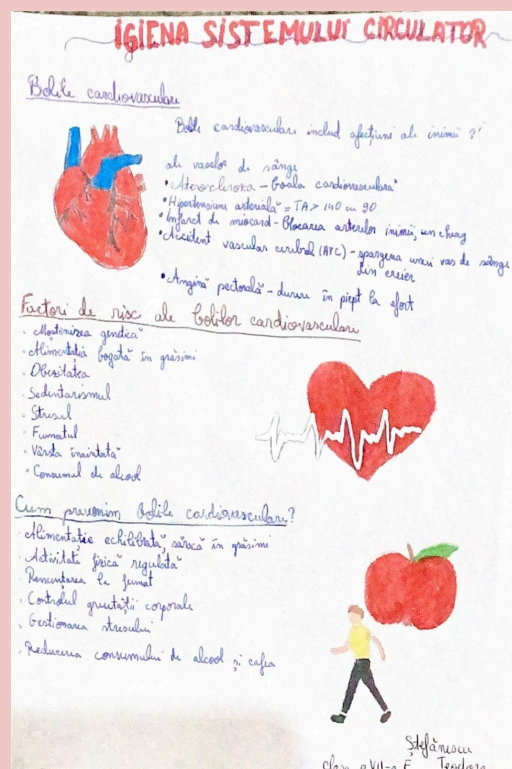 IGIENA SISTEMULUI CIRCULATOR
Bolile cardiovasculare
Bolile cardiovasculare includ afecțiuni ale inimii și
ale vaselor de sânge
• Ateroscleroza - boala cardiovasculară
• Hipertensiune arterială = TA > 140 cu 90
• Infarct de miocard - Blocarea arterelor inimii, un cheag
• Accident vascular cerebral (AVC) - spargerea unui vas de sânge
din creier
• Angină pectorală - durere în piept la efort
Factori de risc ale bolilor cardiovasculare
• Moștenirea genetică
• Alimentația bogată în grăsimi
• Obezitatea
• Sedentarismul
• Stresul
• Fumatul
• Vârsta înaintată
• Consumul de alcool
Cum prevenim bolile cardiovasculare?
• Alimentație echilibrată, săracă în grăsimi
• Activitate fizică regulată
• Renunțarea la fumat
• Controlul greutății corporale
• Gestionarea stresului
• Reducerea consumului de alcool și cafea
Ștefănescu
clasa a VII-a E Teodora